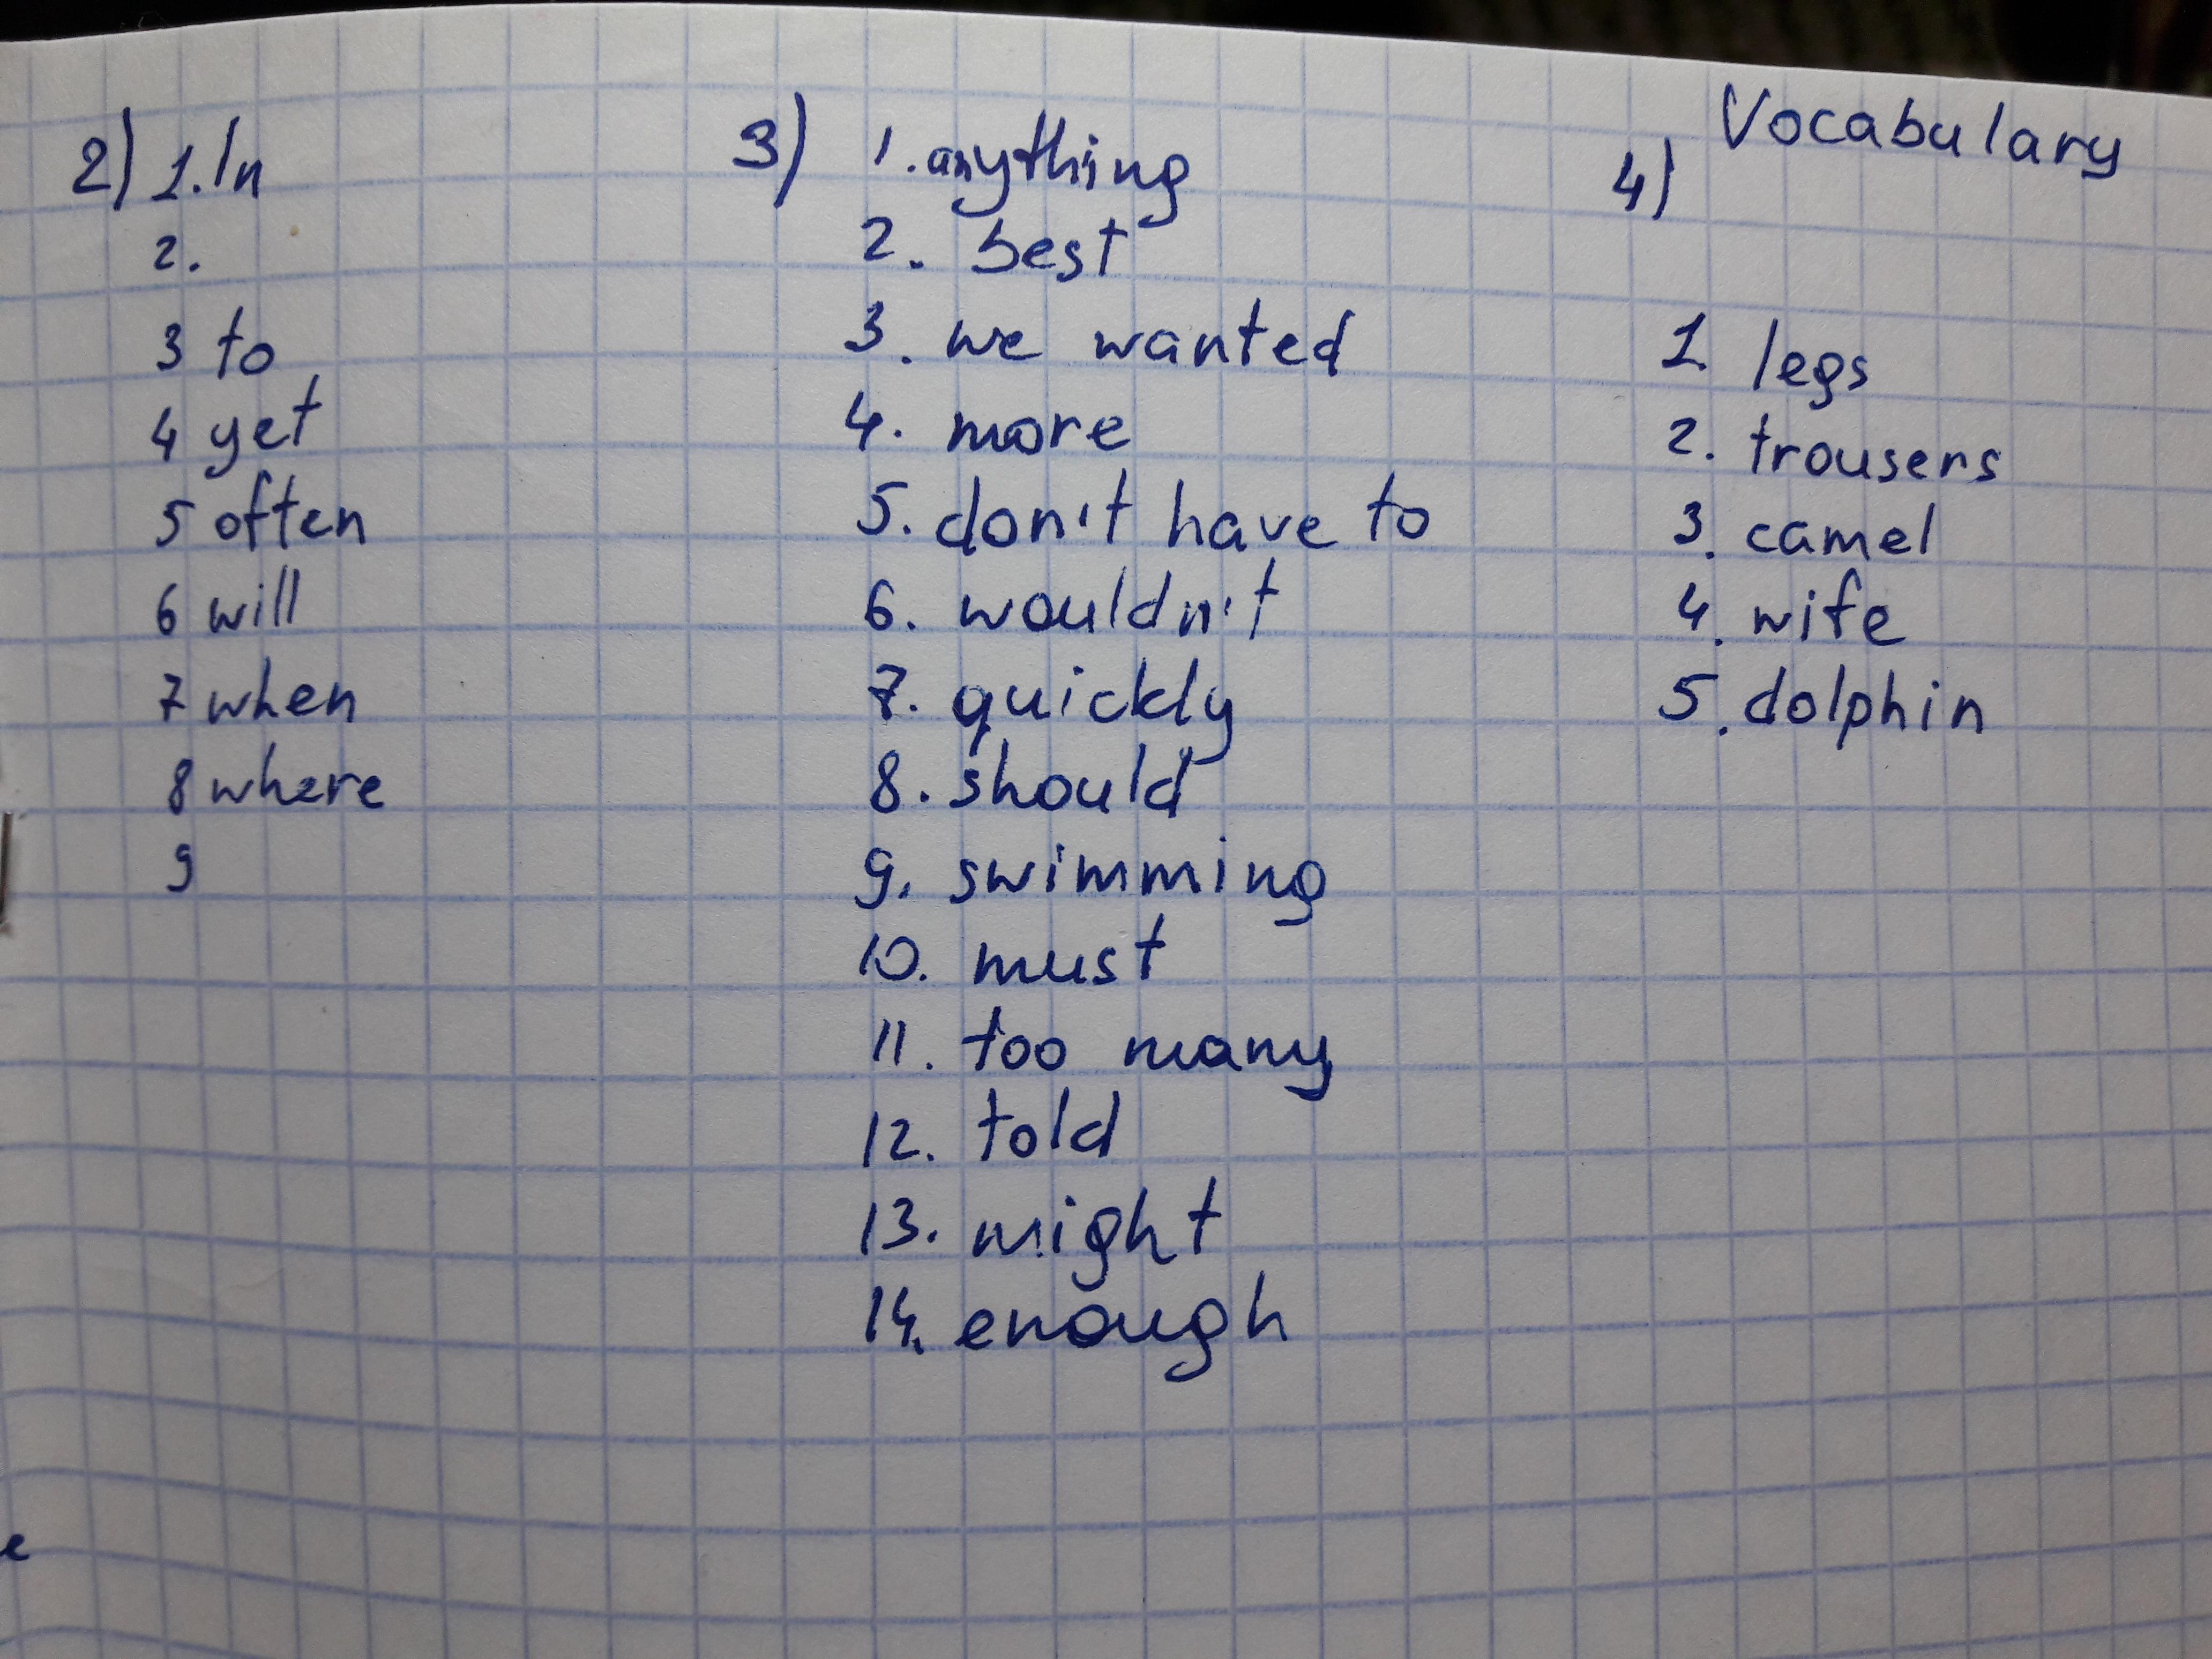 2) 1. In
2.
3 to
4 yet
5 often
6 will
7 when
8 where
9
3) 1. anything
2. best
3. we wanted
4. more
5. don't have to
6. wouldn't
7. quickly
8. should
9. swimming
10. must
11. too many
12. told
13. might
14. enough
Vocabulary
4)
1 legs
2. trousers
3. camel
4. wife
5. dolphin
e